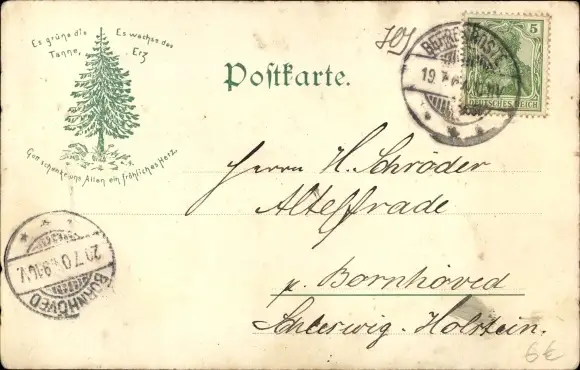 Es grüne die Tanne,
Es wachse das Erz
Gott schenke uns Allen ein fröhliches Herz.
Postkarte.
5
DEUTSCHES REICH
19
Herrn H. Schröder
Altefrade
p. Bornhöved
Schleswig-Holstein.
20.7.0
9-10V.
BORNHÖVED
6€